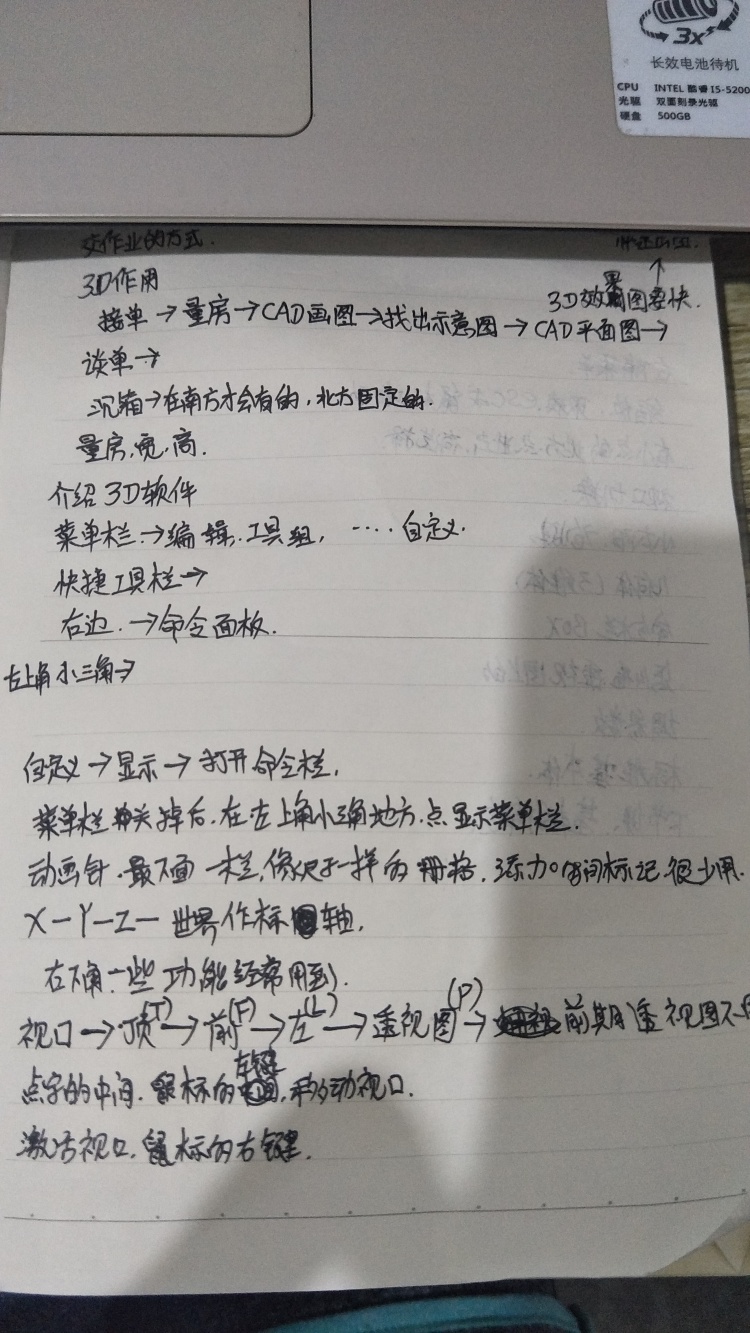 3x
长效电池待机
CPU INTEL 酷睿 I5-5200
光驱 双面刻录光驱
硬盘 500GB
交作业的方式.
3D作用
3D效果图要快.
接单→量房→CAD画图→找出示意图→CAD平面图→
谈单→
沉箱→在南方才会有的,北方固定的.
量房,宽,高.
介绍3D软件
菜单栏.→编辑.工具组, ····自定义.
快捷工具栏→
右边.→命令面板.
左上角小三角→
自定义→显示→打开命令栏.
菜单栏关掉后.在左上角小三角地方.点显示菜单栏.
动画针.最下面一栏,像尺子一样的栅格.添加时间标记.很少用.
X-Y-Z-世界作标轴.
右下角一些功能经常用到.
视口→顶(T)→前(F)→左(L)→透视图(P)→前期透视图不用
点字的中间.鼠标的左键,移动视口.
激活视口.鼠标的右键.